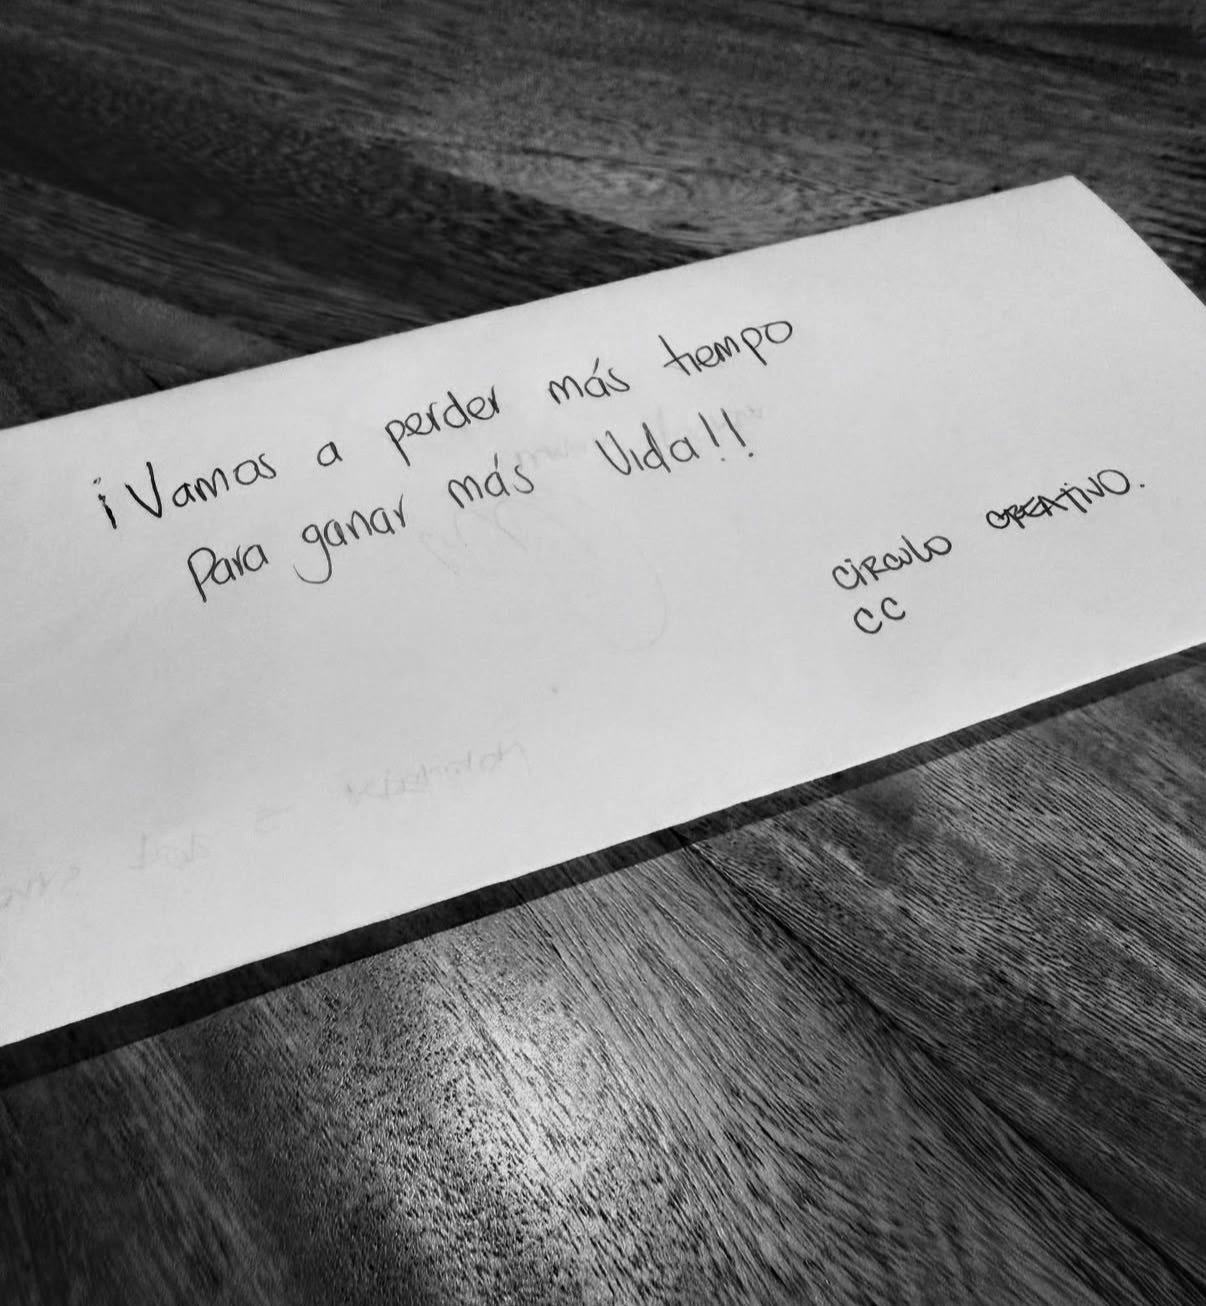 ¡Vamos a perder más tiempo
Para ganar más Vida!!
CÍRCULO CREATIVO.
CC